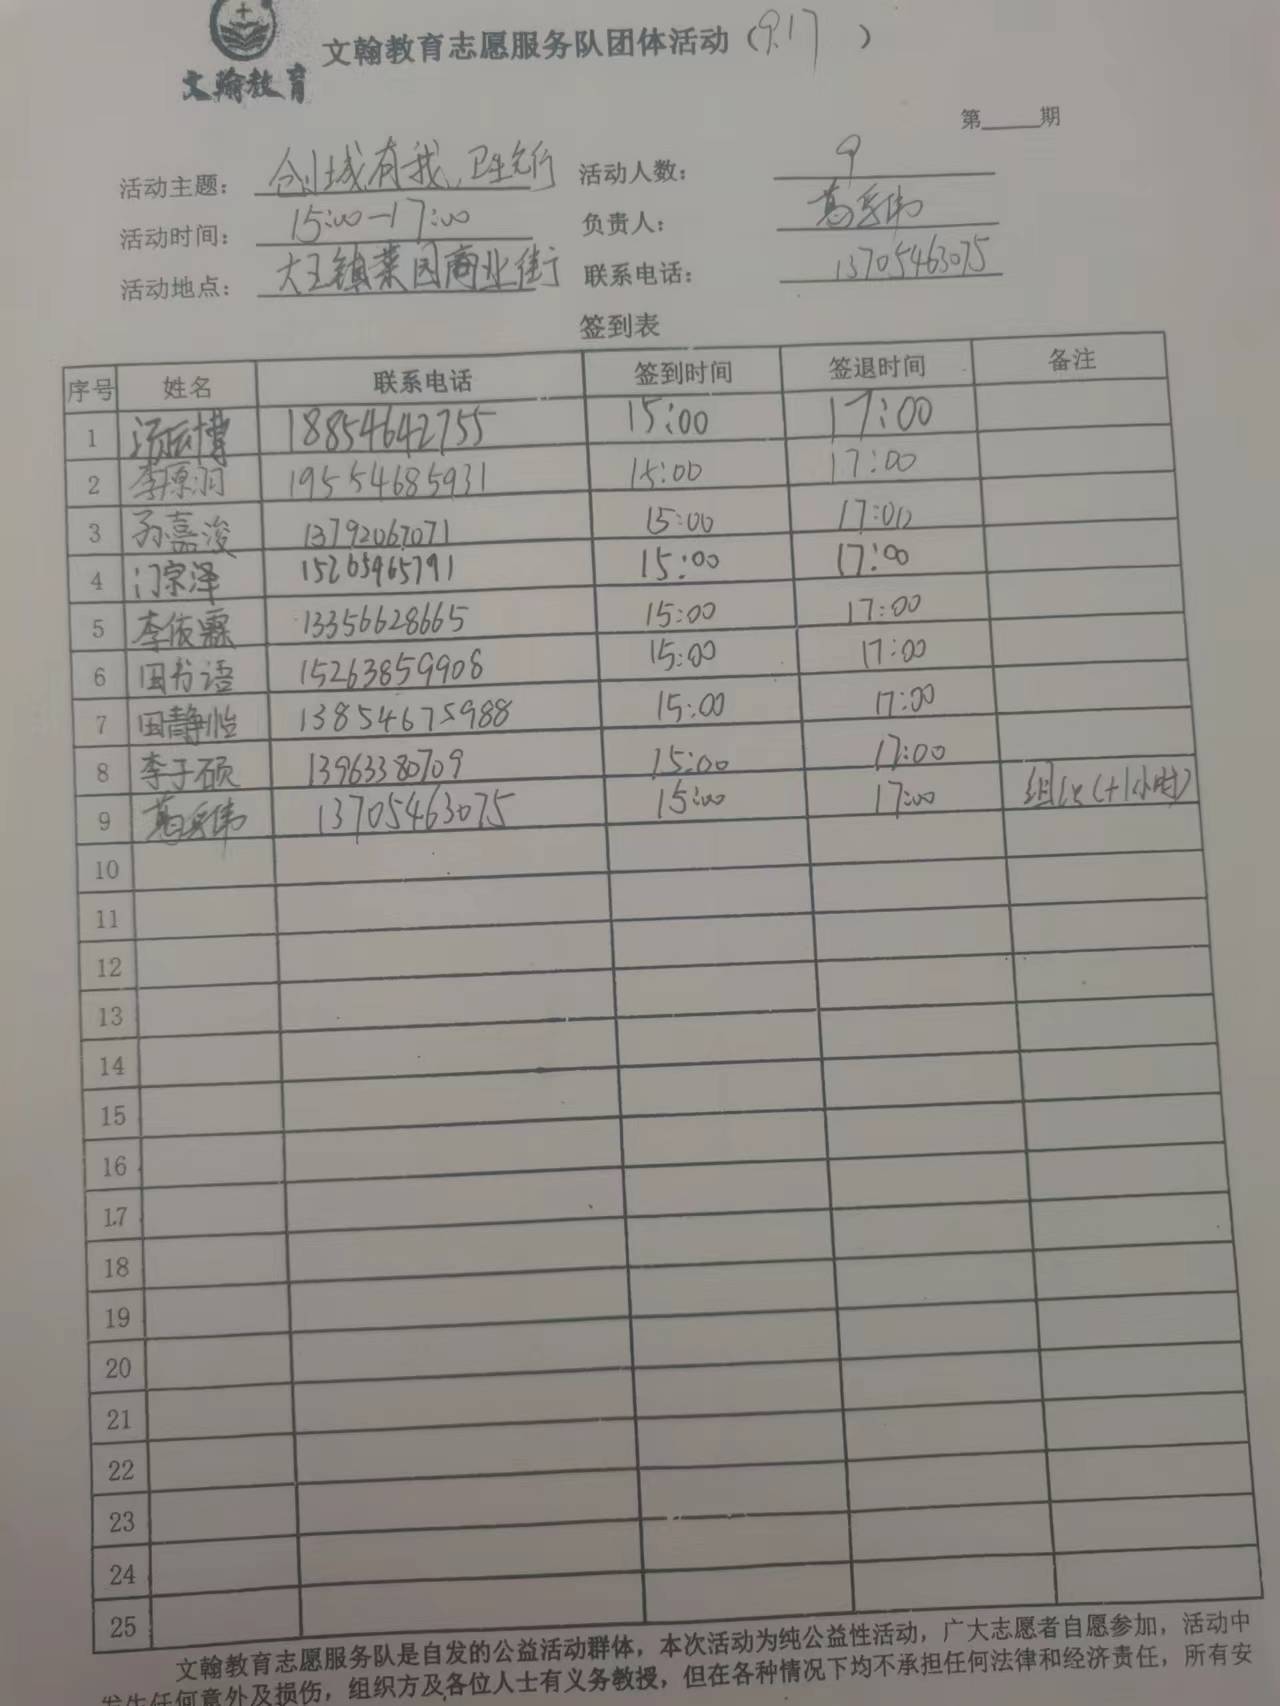 文翰教育志愿服务队团体活动（9.17）
文翰教育
第____期
活动主题：创城有我,卫生先行 活动人数：9
活动时间：15:00—17:00 负责人：葛兵伟
活动地点：大王镇菜园商业街 联系电话：13705463075
签到表
序号 姓名 联系电话 签到时间 签退时间 备注
1 18854642755 15:00 17:00
2 李原润 19554685931 15:00 17:00
3 孙嘉浚 13792067071 15:00 17:00
4 门宗泽 15265965791 15:00 17:00
5 李依霖 13356628665 15:00 17:00
6 田书语 15263859908 15:00 17:00
7 田静怡 13854675988 15:00 17:00
8 李子硕 13963380709 15:00 17:00
9 葛兵伟 13705463075 15:00 17:00 组长(+1小时)
10
11
12
13
14
15
16
17
18
19
20
21
22
23
24
25
文翰教育志愿服务队是自发的公益活动群体，本次活动为纯公益性活动，广大志愿者自愿参加，活动中
发生任何意外及损伤，组织方及各位人士有义务教授，但在各种情况下均不承担任何法律和经济责任，所有安